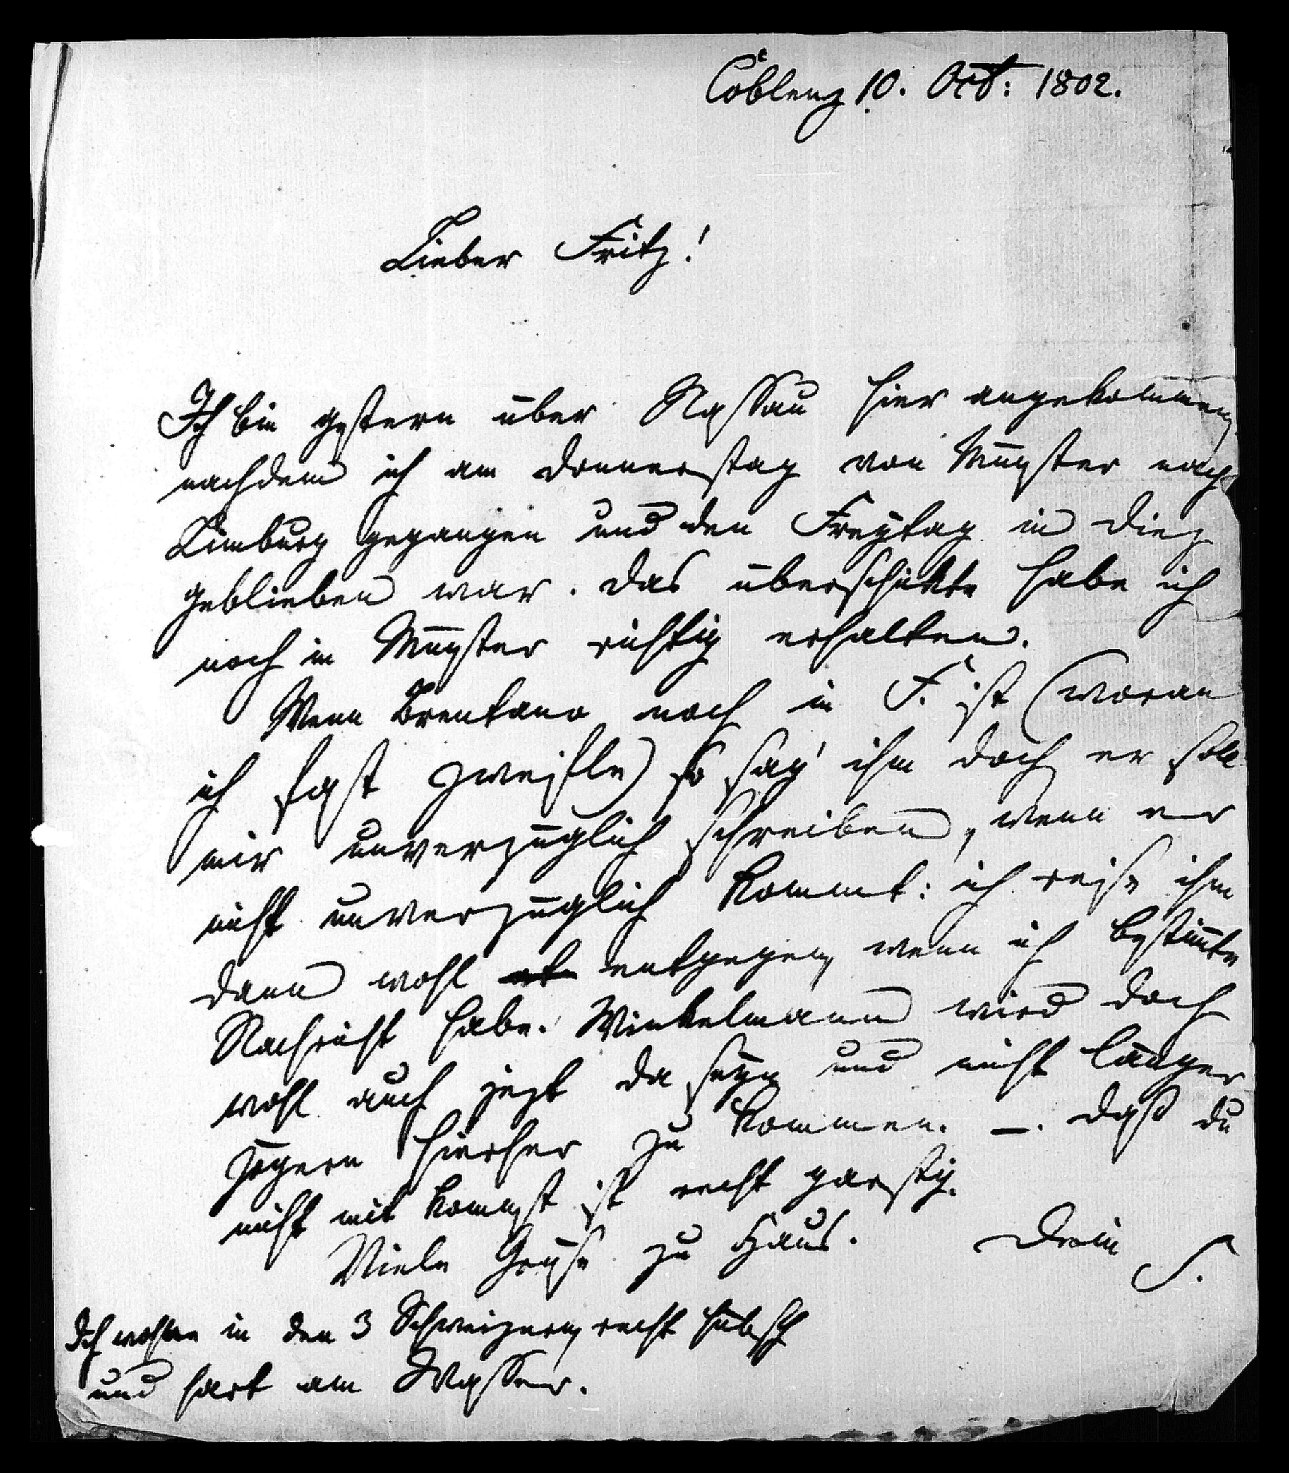 Coblenz 10. Oct: 1802.
Lieber Fritz!
Ich bin gestern über Nassau hier angekommen,
nachdem ich am Donnerstag von Münster nach
Limburg gegangen und den Freytag in Diez
geblieben war. Das überschickte habe ich
noch in Münster richtig erhalten.
Wenn Brentano noch in F. ist (woran
ich fast zweifle) so sag' ihm doch er soll
mir unverzüglich schreiben, wenn er
nicht unverzüglich kommt: ich reise ihm
dann wohl entgegen, wenn ich bestimte
Nachricht habe. Winkelmann wird doch
wohl auch jezt da seyn und nicht länger
zögern hierher zu kommen. —. Daß du
nicht mit kommst ist recht garstig.
Viele Grüße zu Haus. Dein
S.
Ich wohne in den 3 Schweizern, recht hübsch
und hart am Wasser.